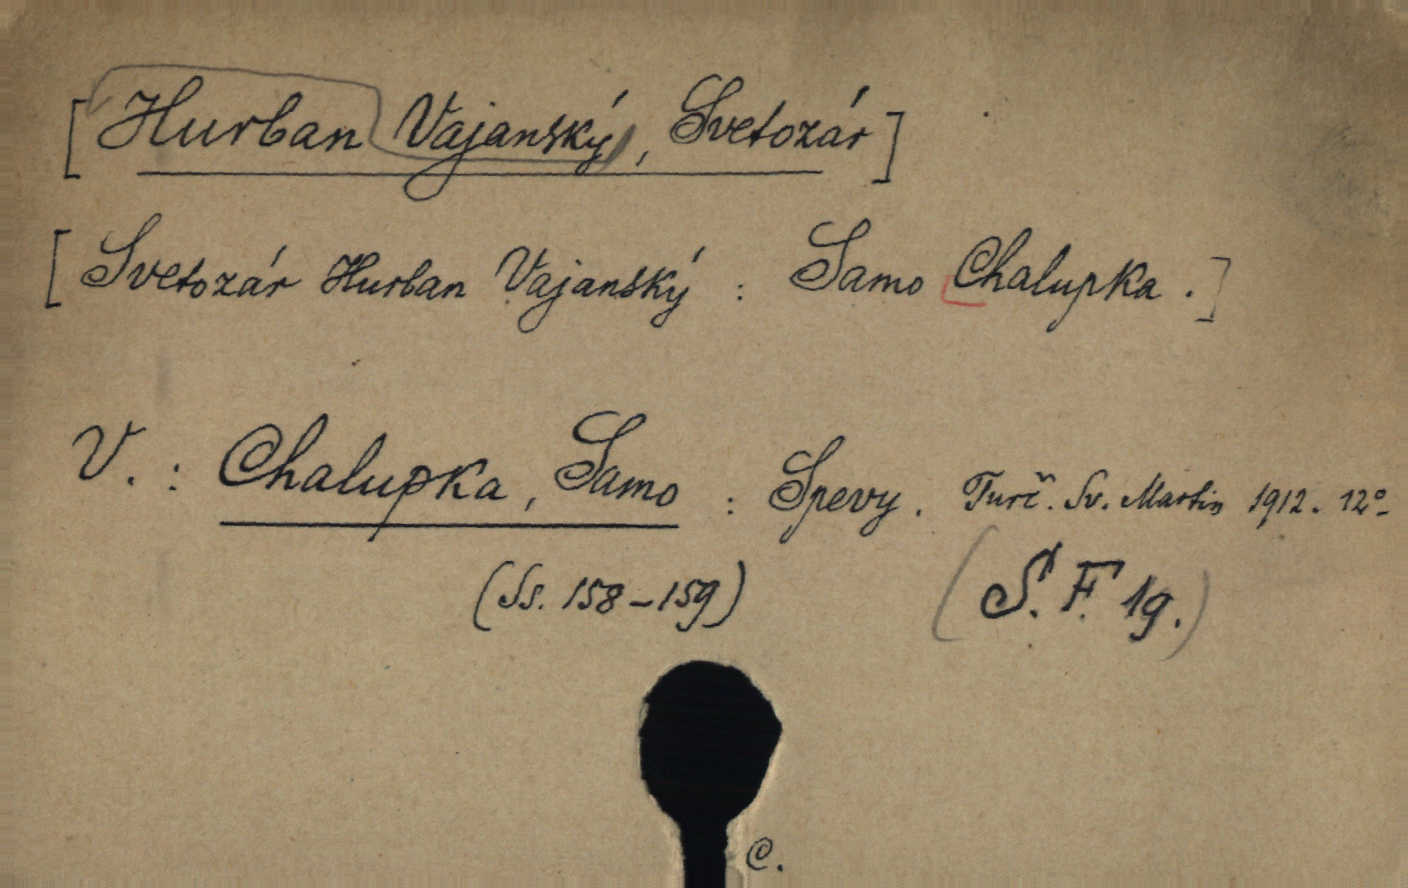 [Hurban Vajanský, Svetozár]
[Svetozár Hurban Vajanský : Samo Chalupka.]
V. : Chalupka, Samo : Spevy. Turč. Sv. Martin 1912. 12°
(Ss. 158-159) (S. F. 19.)
C.